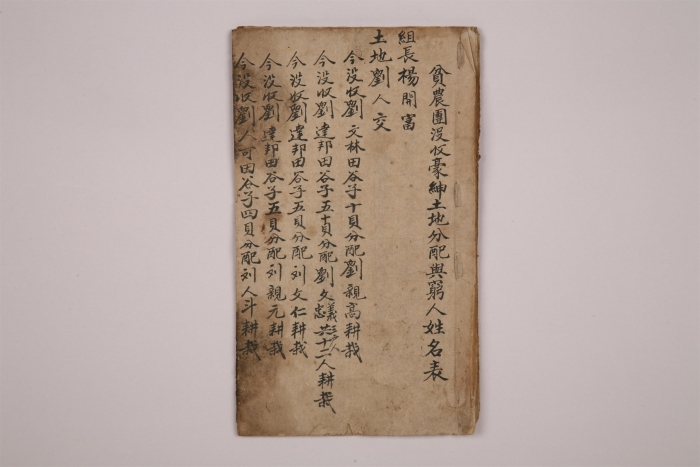 貧農團沒收豪紳土地分配與窮人姓名表
組長楊開富
土地劉人交
今沒收劉文林田谷子十貝分配劉親高耕栽
今沒收劉達邦田谷子五十貝分配劉文義忠共十二人耕栽
今沒收劉達邦田谷子五貝分配刘文仁耕栽
今沒收劉達邦田谷子五貝分配刘親元耕栽
今沒收劉人可田谷子四貝分配刘人斗耕栽